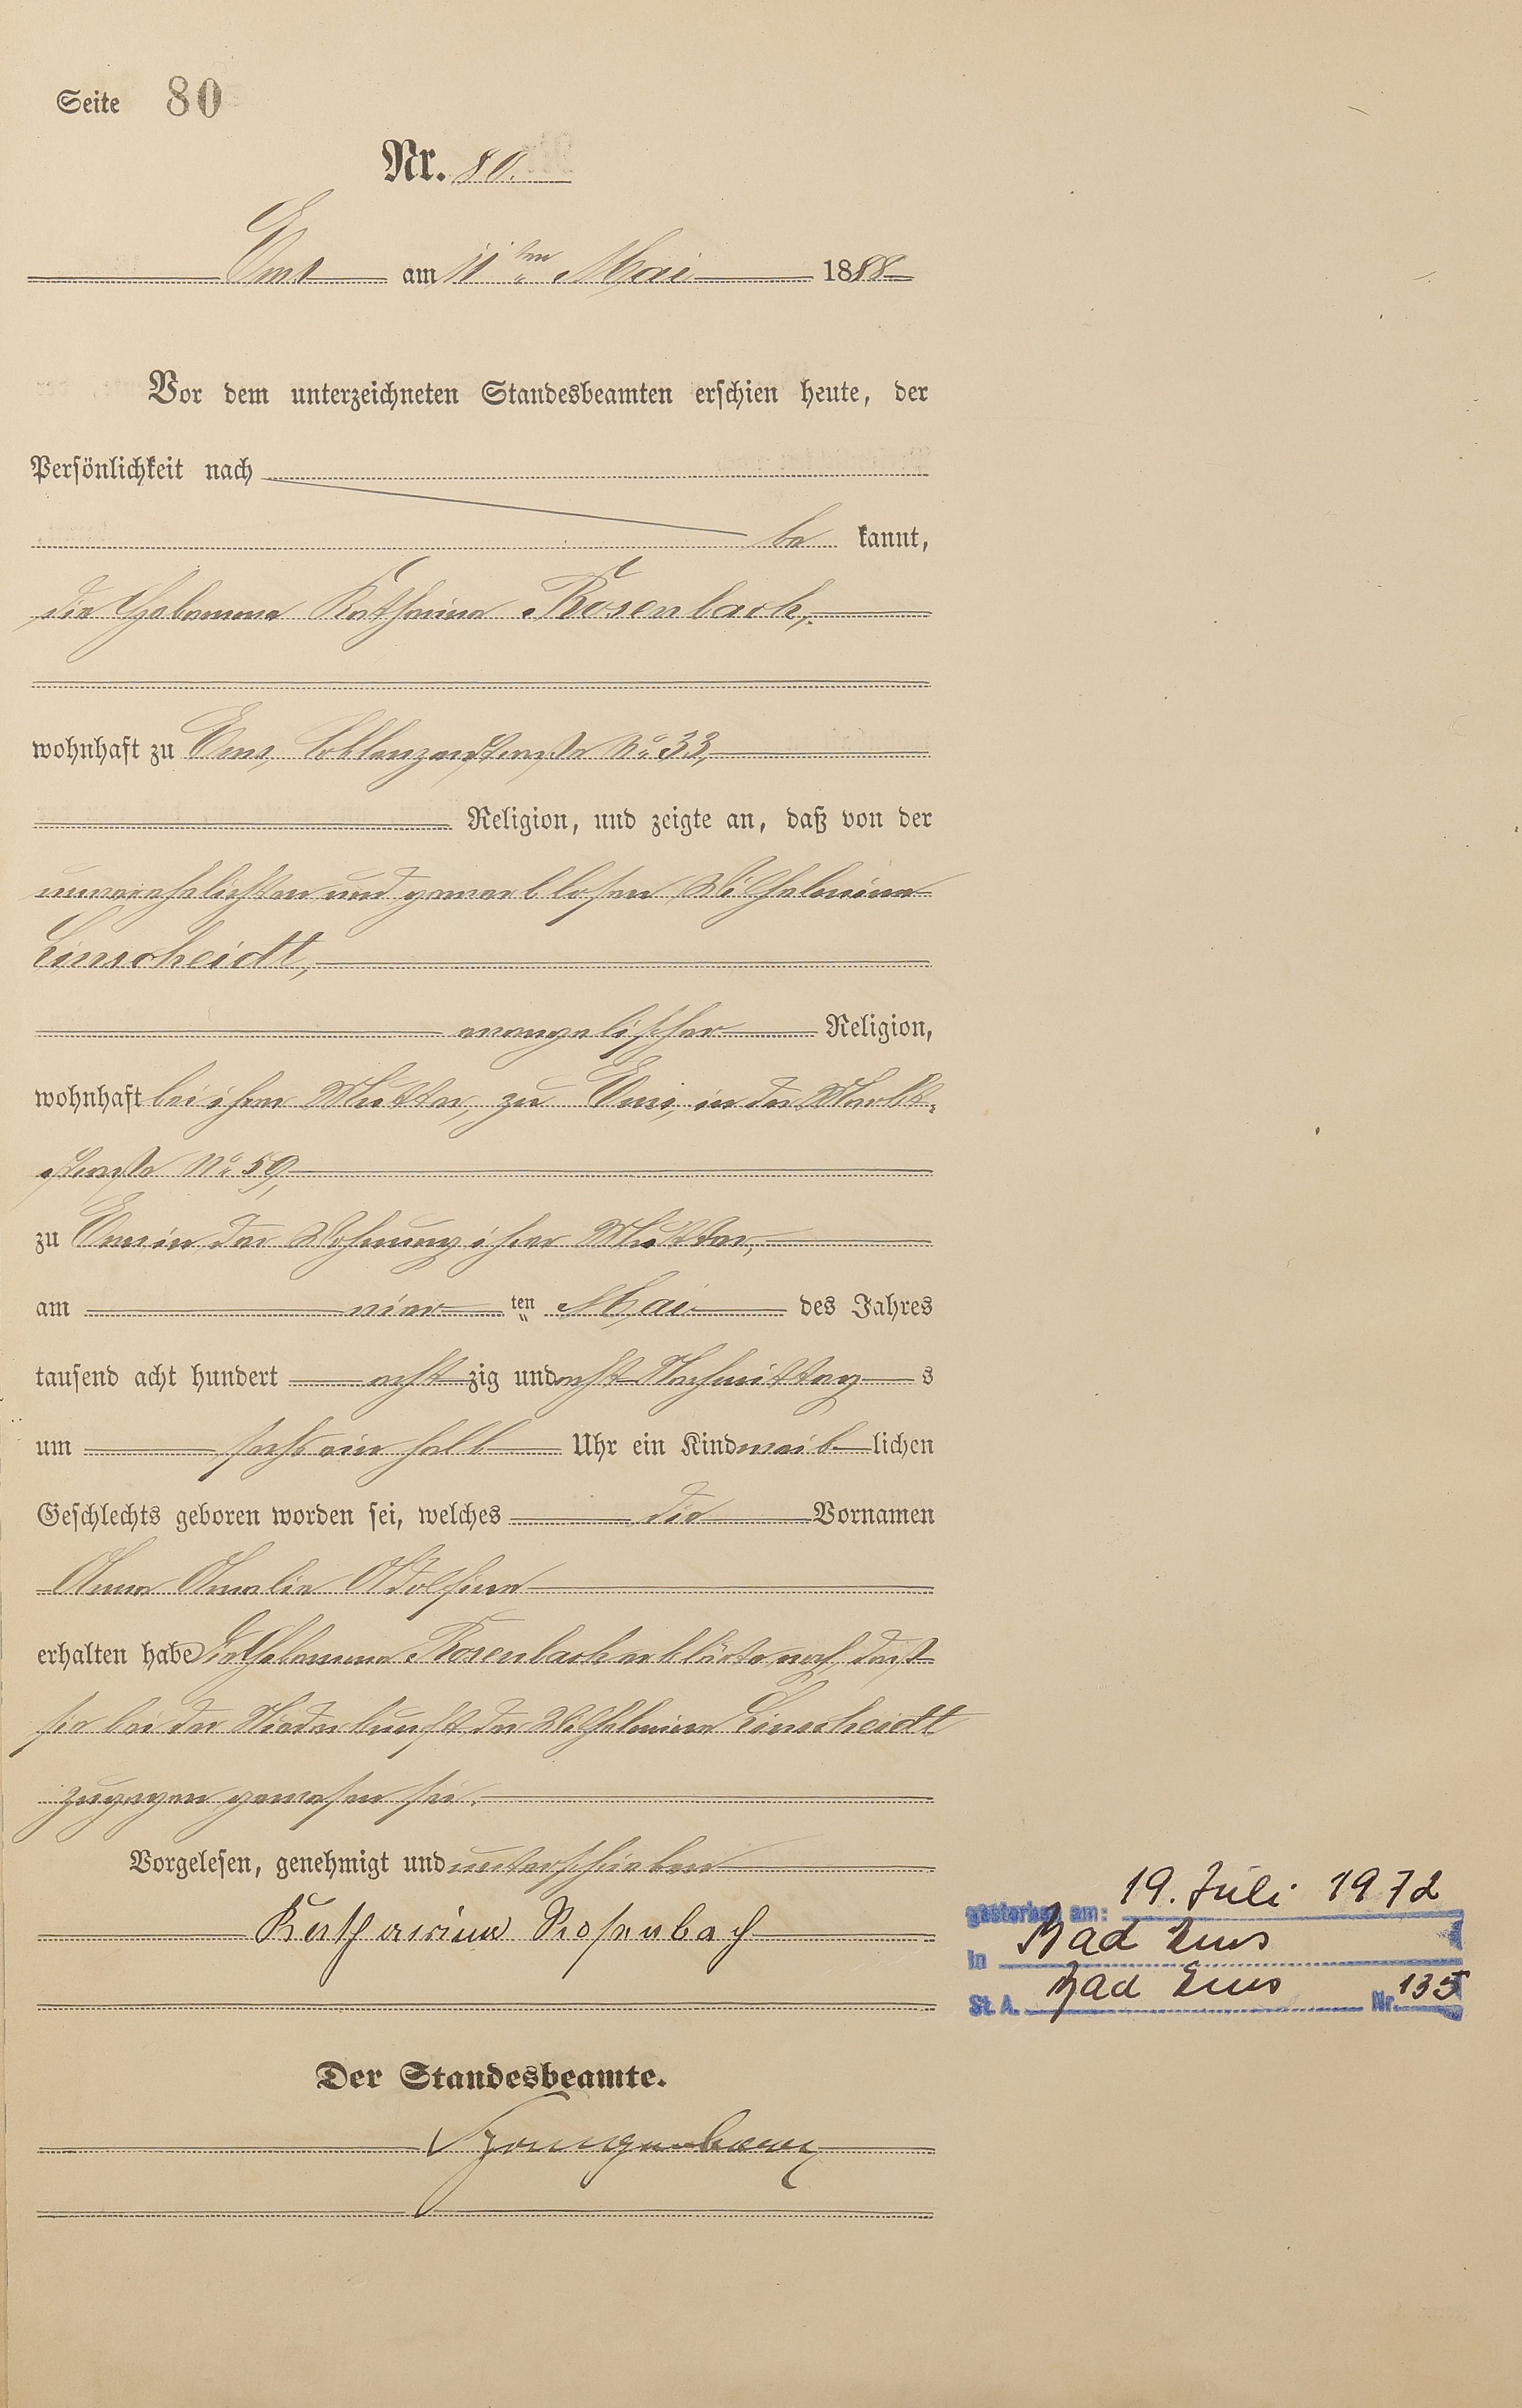 Seite 80
Nr. 80.
Ems am 11ten Mai 1888
Vor dem unterzeichneten Standesbeamten erschien heute, der
Persönlichkeit nach
be kannt,
die Hebamme Katharina Rosenbach,
wohnhaft zu Ems, Coblenzerstraße No 33,
Religion, und zeigte an, daß von der
unverehelichten und gewerblosen Wilhelmine
Linscheidt,
evangelischer Religion,
wohnhaft bei ihrer Mutter, zu Ems, in der Markt-
straße No 59,
zu Ems in der Wohnung ihrer Mutter,
am vier ten Mai des Jahres
tausend acht hundert acht zig und acht Nachmittag s
um sechs ein halb Uhr ein Kind weib lichen
Geschlechts geboren worden sei, welches die Vornamen
Anna Amalie Adolfine
erhalten habe Die Hebamme Rosenbach erklärte noch, daß
sie bei der Niederkunft der Wilhelmine Linscheidt
zugegen gewesen sei.
Vorgelesen, genehmigt und unterschrieben
Katharina Rosenbach
Der Standesbeamte.
gestorben am: 19. Juli 1972
in Bad Ems
St. A. Bad Ems Nr. 135